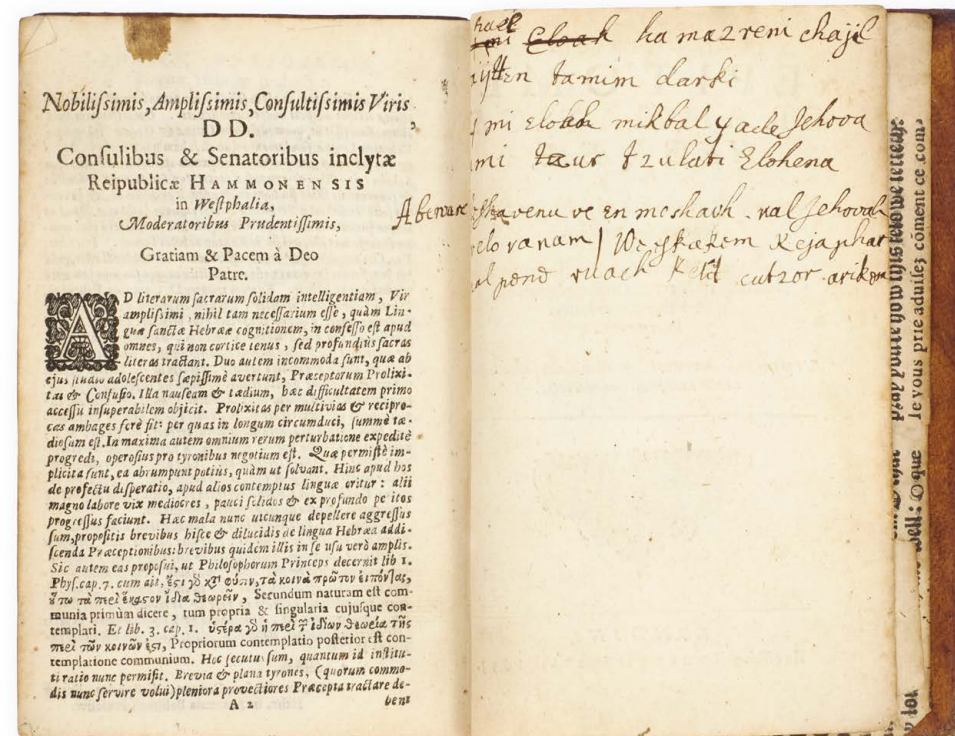 Nobilissimis, Amplissimis, Consultissimis Viris,
D D.
Consulibus & Senatoribus inclytæ
Reipublicæ HAMMONENSIS
in Westphalia,
Moderatoribus Prudentissimis,
Gratiam & Pacem à Deo
Patre.
AD literarum sacrarum solidam intelligentiam, Viri
amplissimi, nihil tam necessarium esse, quàm Lin-
guæ sanctæ Hebrææ cognitionem, in confesso est apud
omnes, qui non cortice tenus, sed profundius sacras
literas tractant. Duo autem incommoda sunt, quæ ab
ejus studio adolescentes sæpissimè avertunt, Præceptorum Prolixi-
tas & Confusio. Illa nauseam & tædium, hæc difficultatem primo
accessu insuperabilem objicit. Prolixitas per multivias & recipro-
cas ambages ferè fit: per quas in longum circumduci, summè tæ-
diosum est. In maxima autem omnium rerum perturbatione expeditè
progredi, operosius pro tyronibus negotium est. Quæ permistè im-
plicita sunt, ea abrumpunt potius, quàm ut solvant. Hinc apud hos
de profectu desperatio, apud alios contemptus linguæ oritur: alii
magno labore vix mediocres, pauci solidos & ex profundo petitos
progressus faciunt. Hæc mala nunc utcunque depellere aggressus
sum, propositis brevibus hisce & dilucidis de lingua Hebræa addi-
scenda Præceptionibus: brevibus quidem illis in se usu verò amplis.
Sic autem eas proposui, ut Philosophorum Princeps decernit lib 1.
Phys. cap. 7. cum ait, ἔστι γὸ κτ̀ φύσιν, τὰ κοινὰ πρῶτον εἰπόντας,
ὅτω τὰ περὶ ἕκαστον ἴδια θεωρεῖν, Secundum naturam est com-
munia primùm dicere, tum propria & singularia cujusque con-
templari. Et lib. 3. cap. 1. ὑστέρα γὸ ἡ περὶ τ̃ ἰδίων θεωρία τῆς
περὶ τῶν κοινῶν ἐστι, Propriorum contemplatio posterior est con-
templatione communium. Hoc secutus sum, quantum id institu-
ti ratio nunc permisit. Brevia & plana tyrones, (quorum commo-
dis nunc servire volui) pleniora provectiores Præcepta tractare de-
A 2 bent
hael
Eloah hamazreni chajil
tamim darki
mi eloah mikbal yade Jehova
mi tzur tzulati Elohena
ve en moshavh . val Jehovah
velo vanam |
ruach
pour
Ie vous prie advisez cõment ce com
well: O que